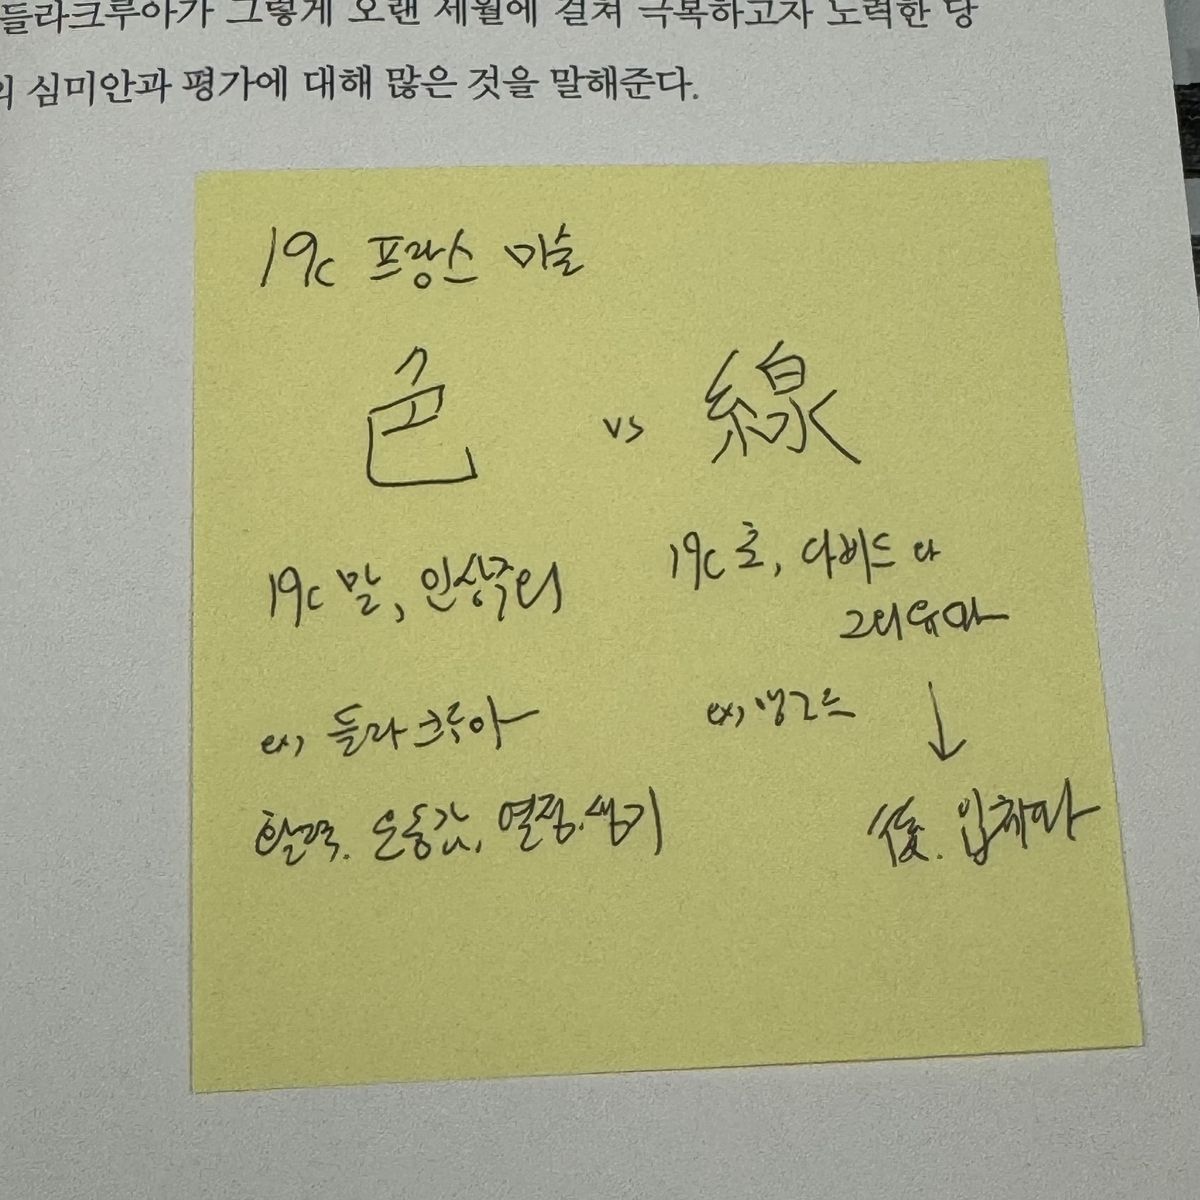 들라크루아가 그렇게 오랜 세월에 걸쳐 극복하고자 노력한 당
의 심미안과 평가에 대해 많은 것을 말해준다.
19c 프랑스 미술
色 vs 線
19c 말, 인상주의
19c 초, 다비드와
그의 유파
ex, 들라크루아
ex, 앵그르
↓
활력. 운동감, 열정.생기
後. 입체파